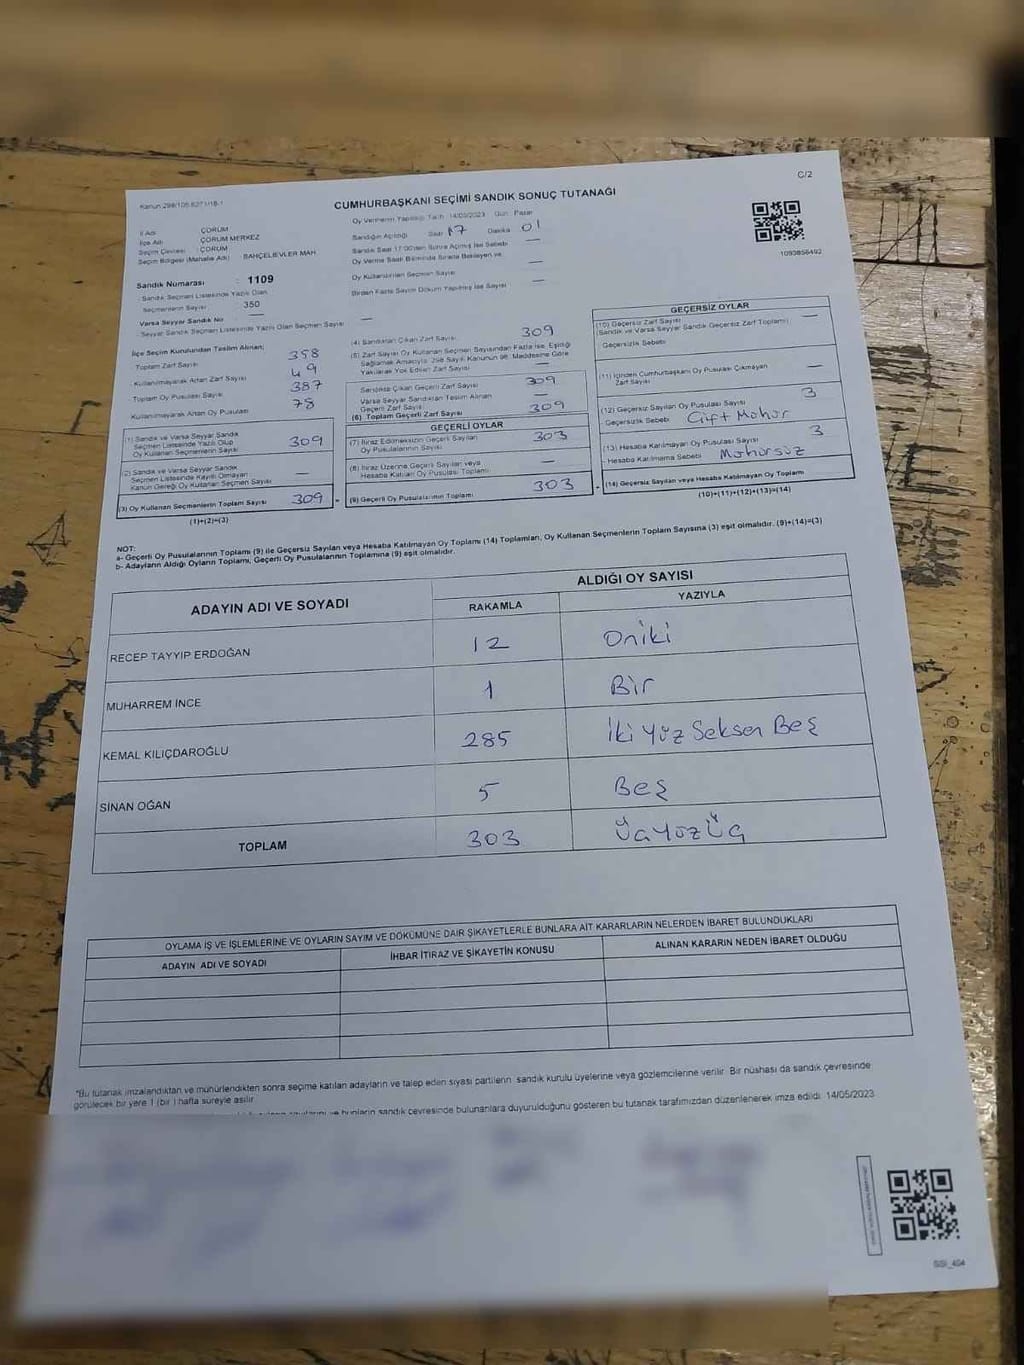 C/2
Kanun 298/105
CUMHURBAŞKANI SEÇİMİ SANDIK SONUÇ TUTANAĞI
Oy Vermenin Yapıldığı Tarih 14/05/2023 Gün Pazar
İl Adı ÇORUM
İlçe Adı ÇORUM MERKEZ
Seçim Çevresi ÇORUM
Seçim Bölgesi (Mahalle Adı) BAHÇELİEVLER MAH
Sandığın Açıldığı Saat 17 Dakika 01
Sandık Saat 17:00'den Sonra Açılmış İse Sebebi
Oy Verme Saati Bitiminde Sırada Bekleyen ve
Oy Kullandırılan Seçmen Sayısı
Birden Fazla Sayım Döküm Yapılmış İse Sayısı
1093856492
Sandık Numarası : 1109
Sandık Seçmen Listesinde Yazılı Olan
Seçmenlerin Sayısı : 350
Varsa Seyyar Sandık No
Seyyar Sandık Seçmen Listesinde Yazılı Olan Seçmen Sayısı
İlçe Seçim Kurulundan Teslim Alınan;
Toplam Zarf Sayısı 358
Kullanılmayarak Artan Zarf Sayısı 49
Toplam Oy Pusulası Sayısı 387
Kullanılmayarak Artan Oy Pusulası 78
(1) Sandık ve Varsa Seyyar Sandık
Seçmen Listesinde Yazılı Olup
Oy Kullanan Seçmenlerin Sayısı 309
(2) Sandık ve Varsa Seyyar Sandık
Seçmen Listesinde Kaydı Olmayan
Kanun Gereği Oy Kullanan Seçmen Sayısı
(3) Oy Kullanan Seçmenlerin Toplam Sayısı 309
(1)+(2)=(3)
(4) Sandıktan Çıkan Zarf Sayısı 309
(5) Zarf Sayısı Oy Kullanan Seçmen Sayısından Fazla İse, Eşitliği
Sağlamak Amacıyla, 298 Sayılı Kanunun 98. Maddesine Göre
Yakılarak Yok Edilen Zarf Sayısı
Sandıkta Çıkan Geçerli Zarf Sayısı 309
Varsa Seyyar Sandıktan Teslim Alınan
Geçerli Zarf Sayısı
(6) Toplam Geçerli Zarf Sayısı 309
GEÇERLİ OYLAR
(7) İtiraz Edilmeksizin Geçerli Sayılan
Oy Pusulalarının Sayısı 303
(8) İtiraz Üzerine Geçerli Sayılan veya
Hesaba Katılan Oy Pusulası Toplamı
(9) Geçerli Oy Pusulalarının Toplamı 303
GEÇERSİZ OYLAR
(10) Geçersiz Zarf Sayısı
(Sandık ve Varsa Seyyar Sandık Geçersiz Zarf Toplamı)
Geçersizlik Sebebi
(11) İçinden Cumhurbaşkanı Oy Pusulası Çıkmayan
Zarf Sayısı
(12) Geçersiz Sayılan Oy Pusulası Sayısı 3
Geçersizlik Sebebi Çift Mühür
(13) Hesaba Katılmayan Oy Pusulası Sayısı 3
Hesaba Katılmama Sebebi Mühürsüz
(14) Geçersiz Sayılan veya Hesaba Katılmayan Oy Toplamı
(10)+(11)+(12)+(13)=(14)
NOT:
a- Geçerli Oy Pusulalarının Toplamı (9) ile Geçersiz Sayılan veya Hesaba Katılmayan Oy Toplamı (14) Toplamları, Oy Kullanan Seçmenlerin Toplam Sayısına (3) eşit olmalıdır. (9)+(14)=(3)
b- Adayların Aldığı Oyların Toplamı, Geçerli Oy Pusulalarının Toplamına (9) eşit olmalıdır.
ADAYIN ADI VE SOYADI
ALDIĞI OY SAYISI
RAKAMLA YAZIYLA
RECEP TAYYIP ERDOĞAN 12 Oniki
MUHARREM İNCE 1 Bir
KEMAL KILIÇDAROĞLU 285 İki Yüz Seksen Beş
SİNAN OĞAN 5 Beş
TOPLAM 303 ÜçYüzÜç
OYLAMA İŞ VE İŞLEMLERİNE VE OYLARIN SAYIM VE DÖKÜMÜNE DAİR ŞİKAYETLERLE BUNLARA AİT KARARLARIN NELERDEN İBARET BULUNDUKLARI
ADAYIN ADI VE SOYADI İHBAR İTİRAZ VE ŞİKAYETİN KONUSU ALINAN KARARIN NEDEN İBARET OLDUĞU
*Bu tutanak imzalandıktan ve mühürlendikten sonra seçime katılan adayların ve talep eden siyasi partilerin sandık kurulu üyelerine veya gözlemcilerine verilir. Bir nüshası da sandık çevresinde
görülecek bir yere 1 (bir) hafta süreyle asılır.
ve bunların sandık çevresinde bulunanlara duyurulduğunu gösteren bu tutanak tarafımızdan düzenlenerek imza edildi. 14/05/2023
SSI_404